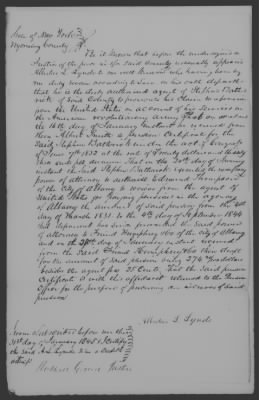 State of New York
Wyoming County
Be it known that before the undersigned a
Justice of the peace in & for said County personally appeared
Charles S. Lynde to me well known who having been by
me duly sworn according to law on his oath deposeth
that he is the duly authorised agent of Stephen Bath
rick of said County to prosecute his Claim
the United States on account of his services in
the American revolutionary Army that
the 16th day of January instant he received from
Hon Albert Smith a pension Certificate for the
said Stephen Bathrick under the act of Congress
of June 7th 1832 at the rate of
This deponent further says That on the 20th day of January
instant the said Stephen Bathrick executed the necessary
power of attorney to authorise Edmund Humphrey
of the City of Albany to receive from the agent of
United States for paying pensions in the agency
of Albany the amount of said pension from the 4th
day of March 1831 to the 4th day of September 1844
that deponent has since presented the said power
of attorney to Edmund Humphrey Esq of the City of Albany
and on the day of January instant received
from the said Edmund Humphrey
for the amount of said pension only 274 dollars
besides the agent fee 25 Cents, that the said pension
Certificate is with this affidavit returned to the Pension
Office for the purpose of procuring an increase of said
pension
Charles S. Lynde
Sworn & subscribed before me this
31st day of January 1845 & I certify
the said Lynde is a credible
witness
Justice